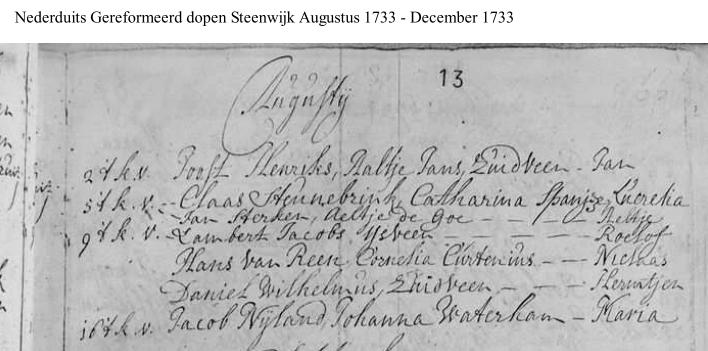 Nederduits Gereformeerd dopen Steenwijk Augustus 1733 - December 1733
13
Augustij
2 't k. v. Joost Henriks, Aaltje Jans, Zuidveen - Jan
5 't k. v. - Claas Stennebrink, Catharina Spanje, Lucretia
Jan Sterken, Aeltje de Goe - - - - Aeltje
9 't k. v. - Lambert Jacobs IJsveen - - - - Roelof
Hans van Reen Cornelia Curtenius - - - Niclaas
Daniel Wilhelmus, Zuidveen - - - Hermtjen
16 't k. v. Jacob Nyland, Johanna Waterham - Maria